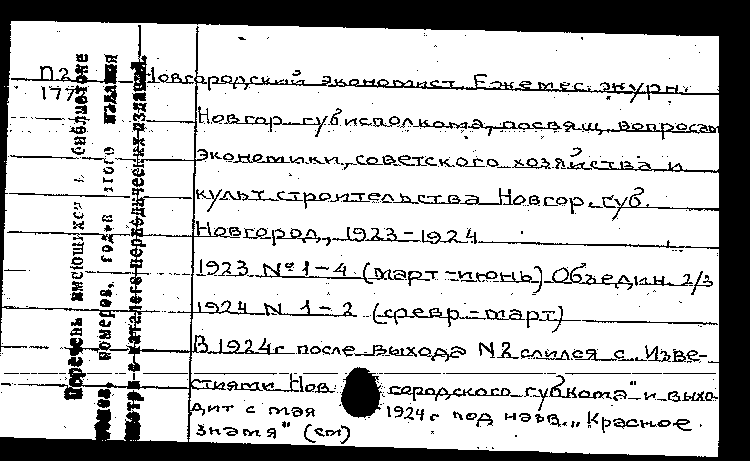 П2
177
Новгородский экономист. Ежемес. журн.
Новгор. губисполкома, посвящ. вопросам
экономики, советского хозяйства и
культ. строительства Новгор. губ.
Новгород, 1923-1924
1923 № 1-4 (март-июнь) Объедин. 2/3
1924 N 1-2 (февр-март)
В 1924г после выхода N 2 слился с „Изве-
стиями Новгородского губкома" и выхо-
дит с мая 1924г под назв. „Красное
знамя" (см)
Перечень имеющихся в библиотеке
томов, номеров, годов этого издания
смотри в каталоге периодических изданий.